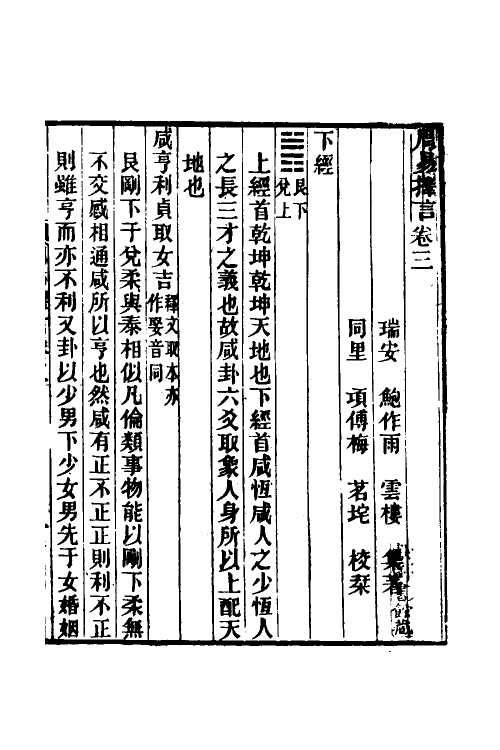 周易擇言卷三
瑞安 鮑作雨 雲樓 集著
同里 項傅梅 茗垞 校栞
下經
艮下
兌上
上經首乾坤乾坤天地也下經首咸恆咸人之少恆人
之長三才之義也故咸卦六爻取象人身所以上配天
地也
咸亨利貞取女吉釋文取本亦作娶音同
艮剛下于兌柔與泰相似凡倫類事物能以剛下柔無
不交感相通咸所以亨也然咸有正不正正則利不正
則雖亨而亦不利又卦以少男下少女男先于女婚姻